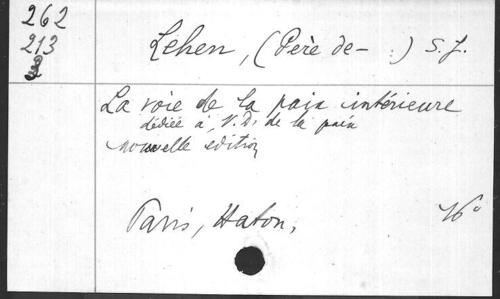 262
213
Lehen, (Père de - .) S. J.
La voie de la paix intérieure
dédiée à N. D. de la paix
nouvelle édition
Paris, Haton,
16°